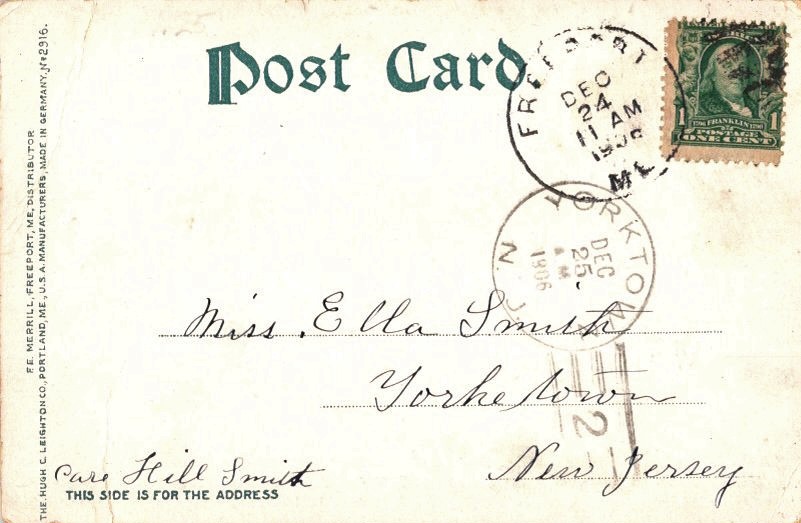 Post Card
FREEPORT
DEC
24
11 AM
1906
ME
1706 FRANKLIN 1790
1 POSTAGE 1
ONE CENT
YORKTOWN
N.J.
DEC
25
A M
1906
2
Miss. Ella Smith
Yorketown
New Jersey
Care Hill Smith
THIS SIDE IS FOR THE ADDRESS
F.E. MERRILL, FREEPORT, ME, DISTRIBUTOR
THE HUGH C. LEIGHTON CO., PORTLAND, ME., U.S.A. MANUFACTURERS, MADE IN GERMANY. No 2916.